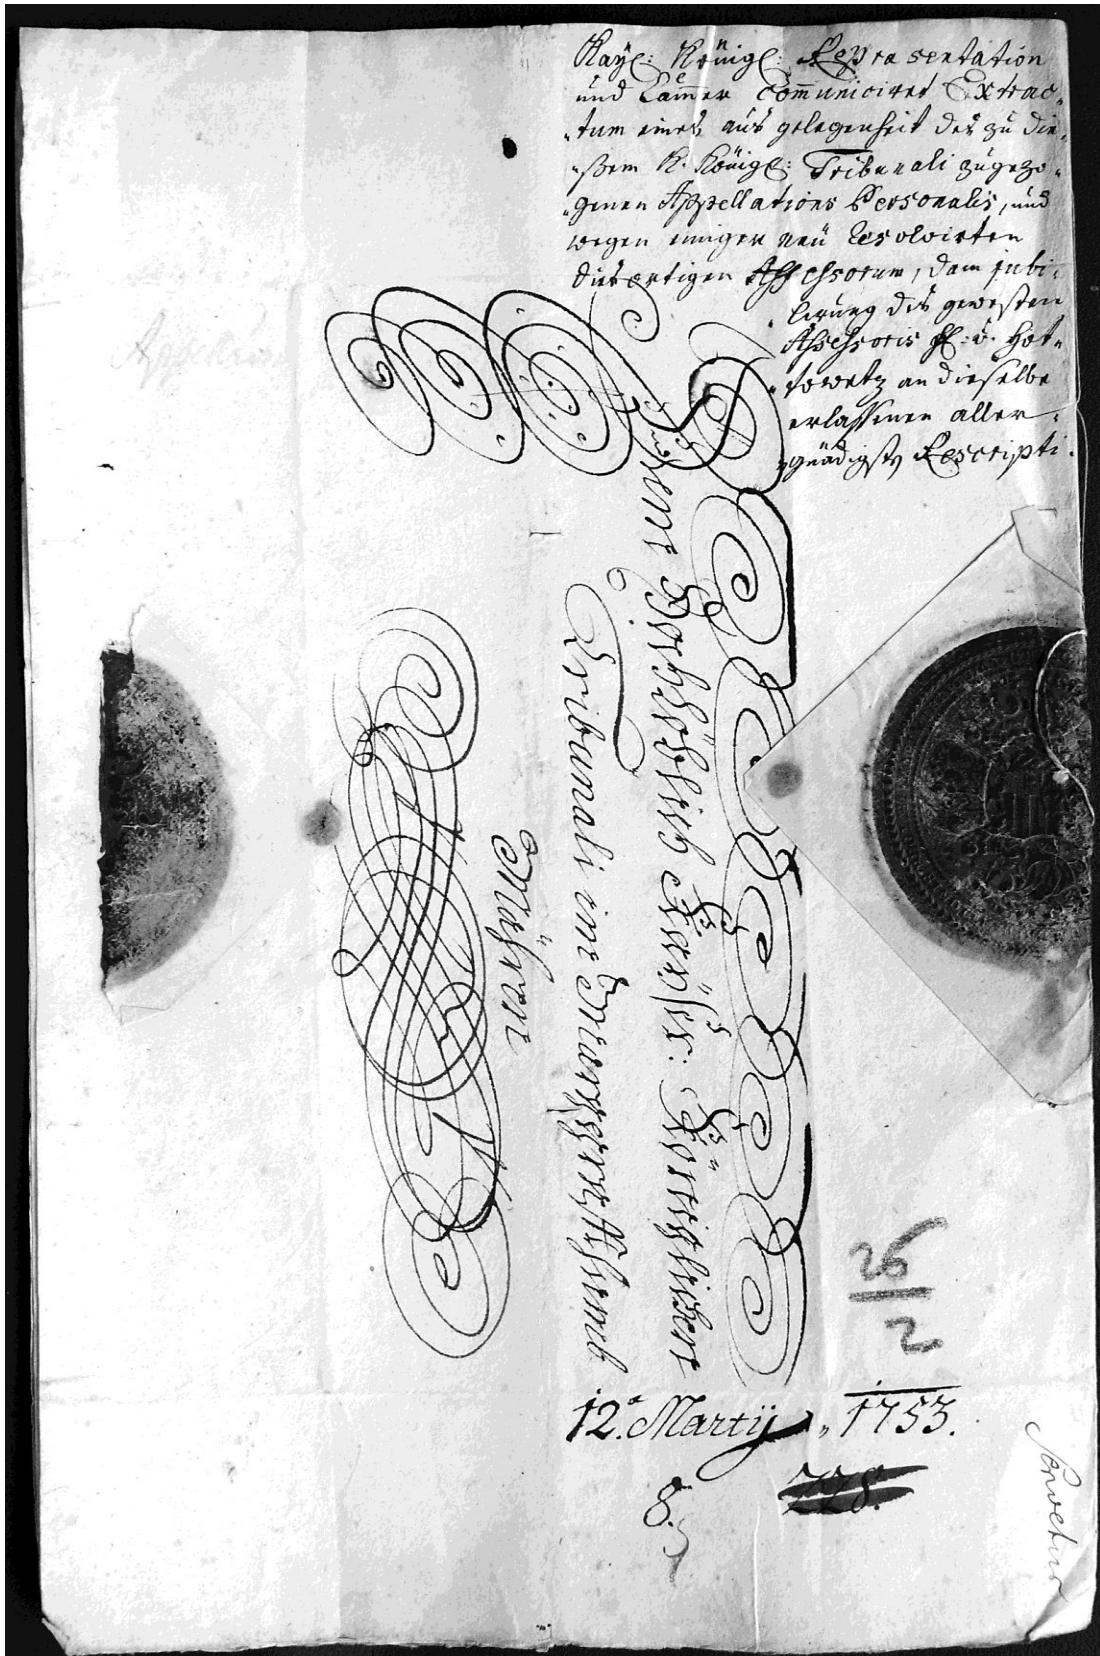 Kayl: Königl: Repraesentation
und Cam̃er Com̃uniciret Extrac„
„tum eines aus gelegenheit des zu die„
„sem K. Königl: Tribunali zugezo„
„genen Appellations Personalis, und
wegen einiger neü resolvirten
diesortigen Assessorum, dann jubi„
„lirung des gewesten
Assessoris H: v. Hot„
„towetz an dieselbe
erlassenen aller„
„gnädigst Rescripti.
Einem Hochlöblich Kayser: Königlichen
Tribunali im Marggraffthumb
Mähren
26
2
12.ª Martij „ 1753.
228.
8.
Servetur